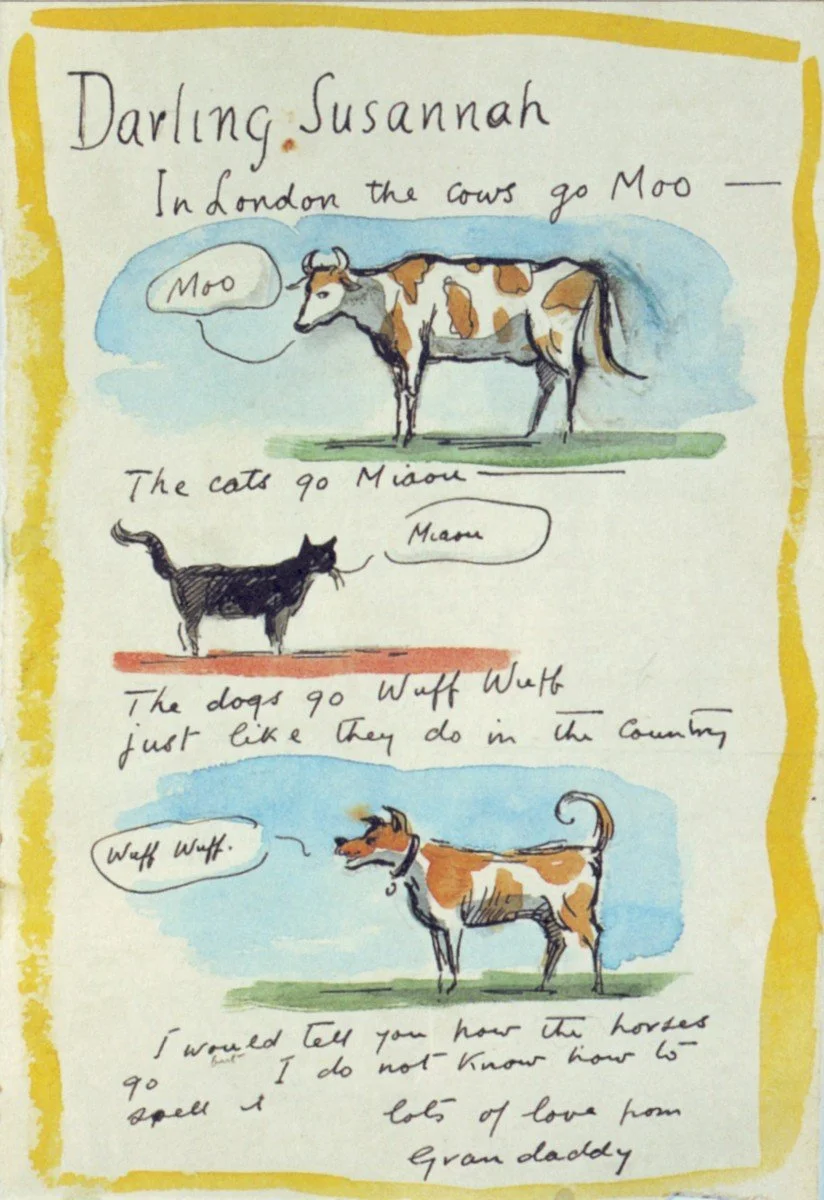 Darling Susannah
In London the cows go Moo —
Moo
The cats go Miaou —
Miaou
The dogs go Wuff Wuff
just like they do in the country
Wuff Wuff.
I would tell you how the horses
go but I do not know how to
spell it
lots of love from
Grandaddy